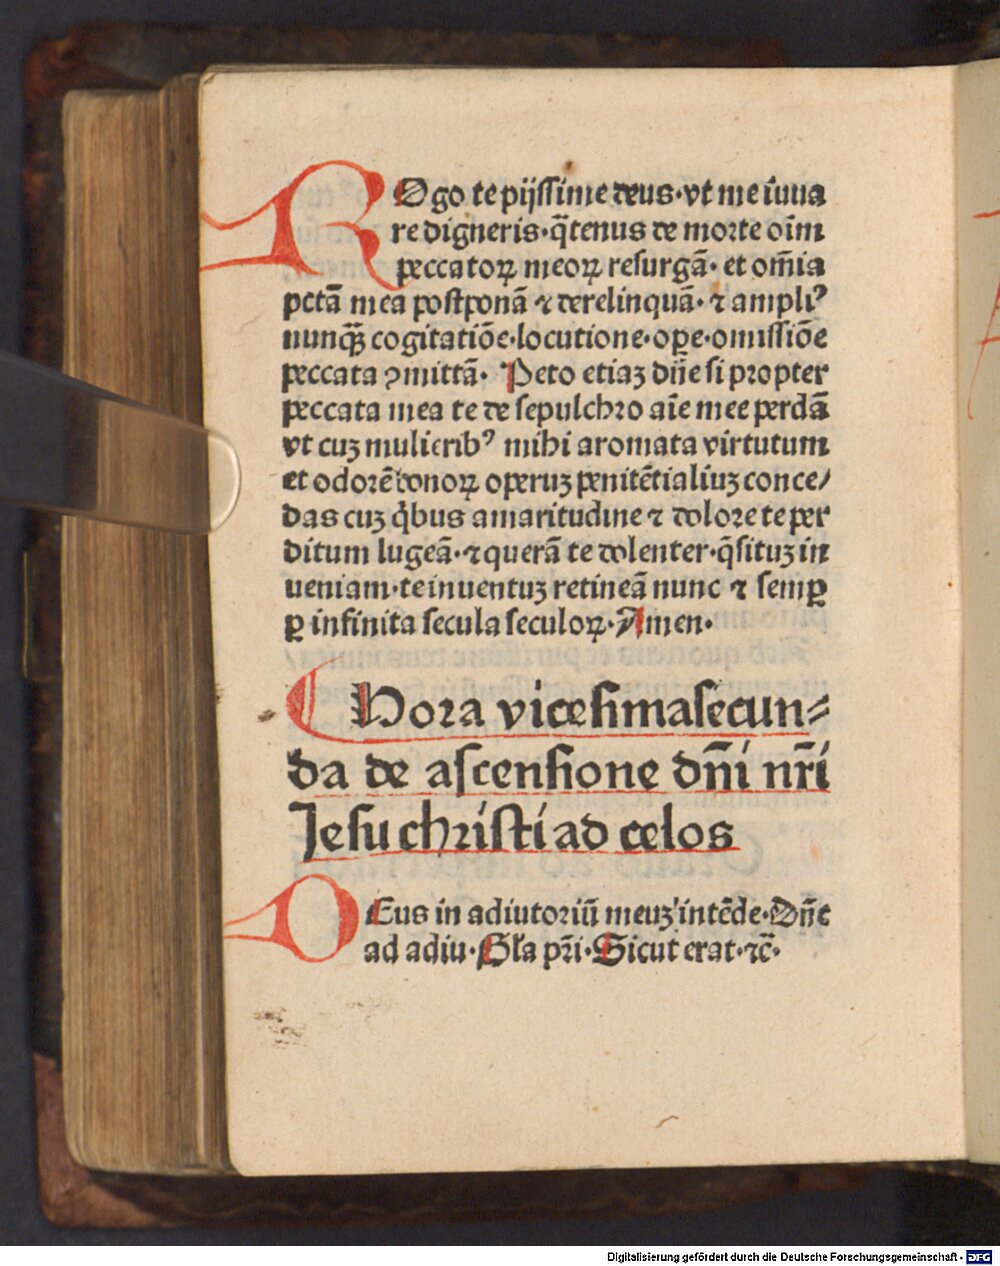 ROgo te pijssime deus·vt me iuua
re digneris·q̄tenus de morte oīm
peccatoꝝ meoꝝ resurgā· et om̄ia
pctā mea postponā ⁊ derelinquā· ⁊ ampliꝰ
nunqꝫ̄ cogitatiōe·locutione·oꝑe·omissiōe
peccata ꝯmittā· Peto etiaꝫ dn̄e si propter
peccata mea te de sepulchro aīe mee perdā
vt cuꝫ mulieribꝰ mihi aromata virtutum
et odorē bonoꝝ operuꝫ penitētialiuꝫ conce/
das cuꝫ qͥbus amaritudine ⁊ dolore te per
ditum lugeā·⁊ querā te dolenter·q̄situꝫ in
ueniam·te inuentuꝫ retineā nunc ⁊ semꝑ
ꝑ infinita secula seculoꝝ·Amen·
Hora vicesimasecun⸗
da de ascensione dn̄i nr̄i
Jesu christi ad celos
DEus in adiutoriū meuꝫ intēde·Dn̄e
ad adiu·Gła pr̄i·Sicut erat·⁊c̄·
Digitalisierung gefördert durch die Deutsche Forschungsgemeinschaft - DFG